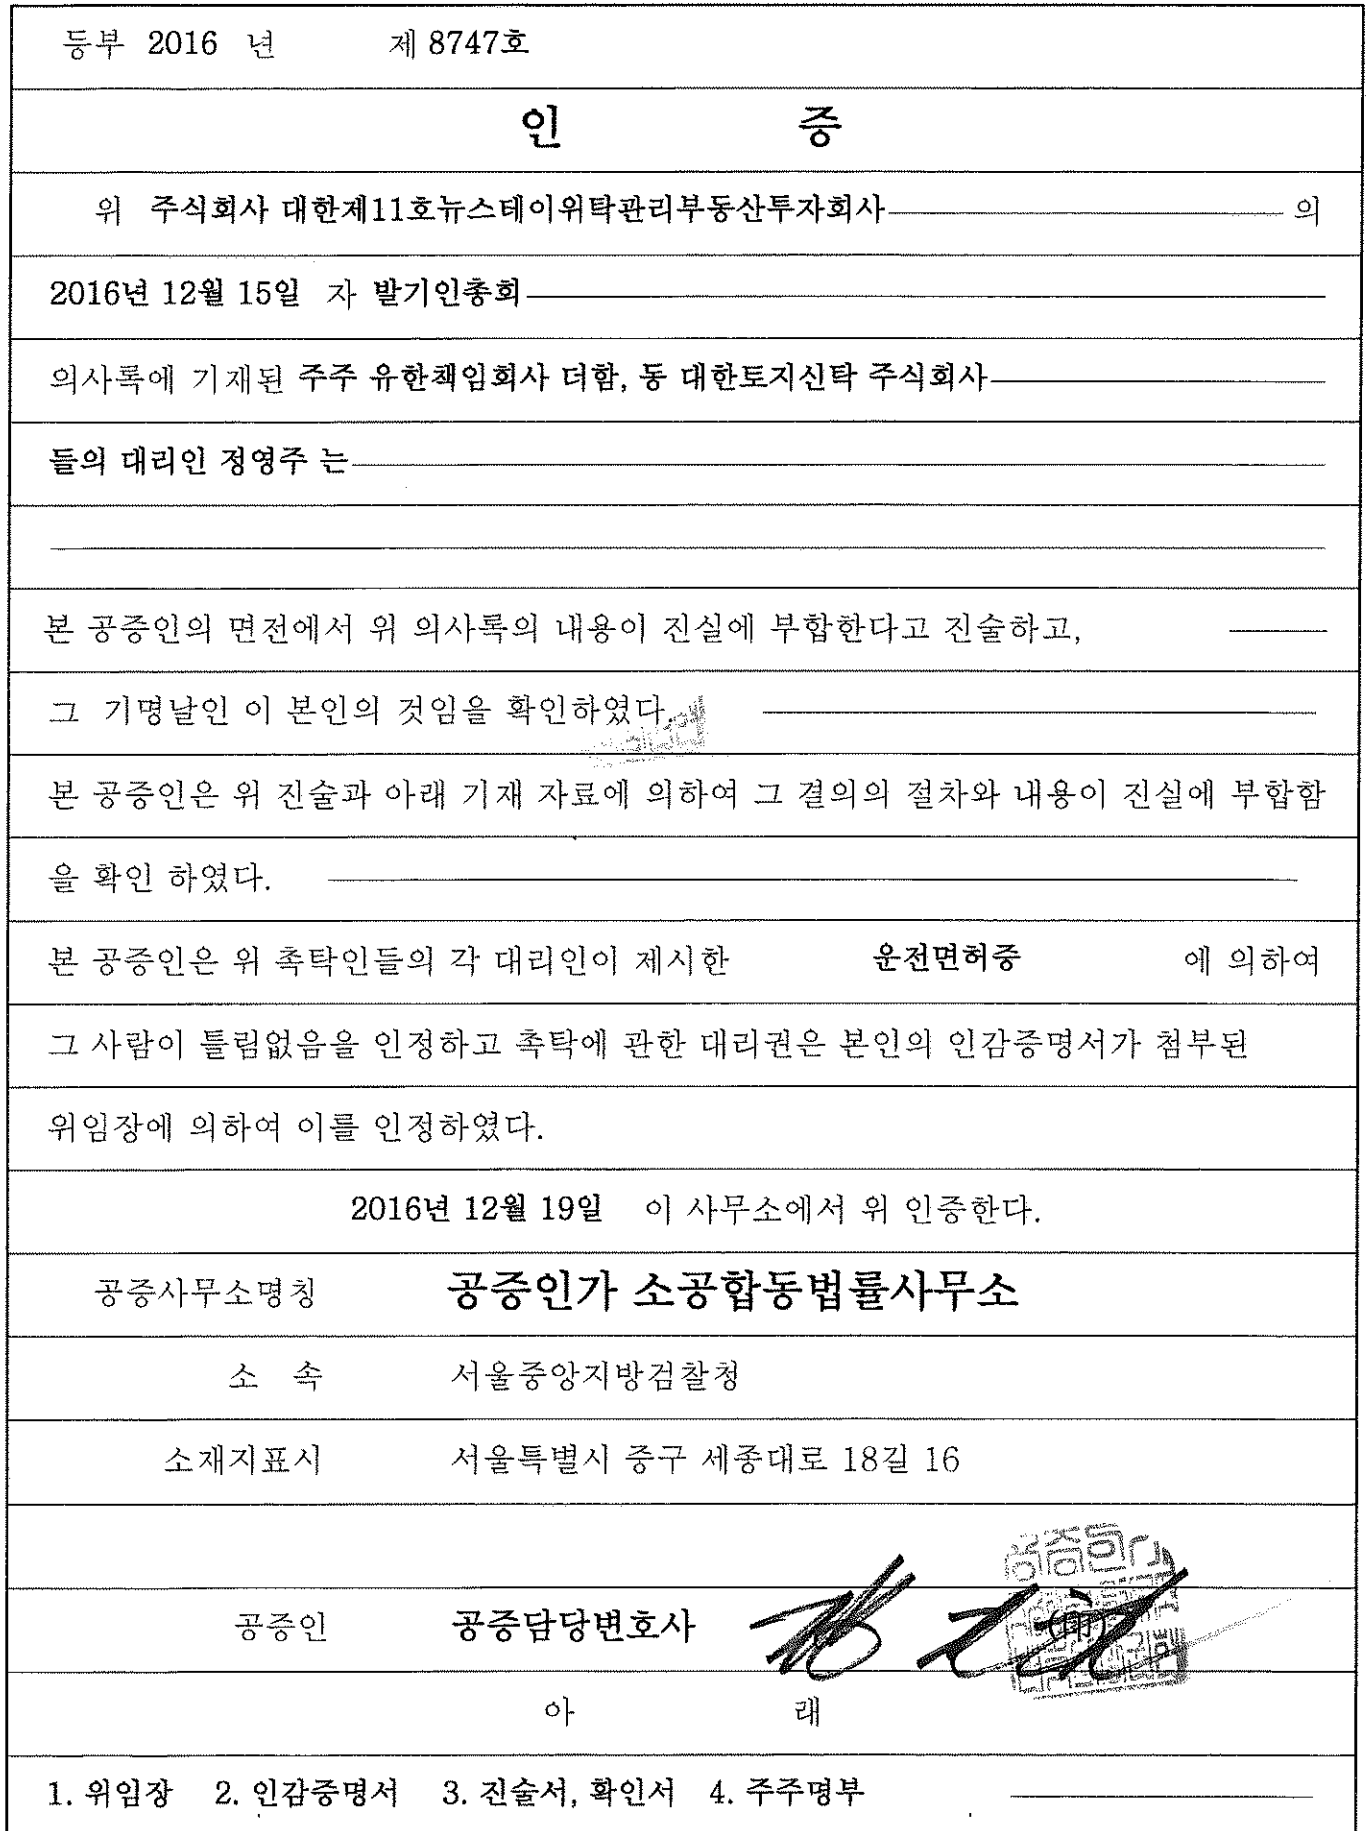 등부 2016 년 제 8747호
인 증
위 주식회사 대한제11호뉴스테이위탁관리부동산투자회사 의
2016년 12월 15일 자 발기인총회
의사록에 기재된 주주 유한책임회사 더함, 동 대한토지신탁 주식회사
들의 대리인 정영주 는
본 공증인의 면전에서 위 의사록의 내용이 진실에 부합한다고 진술하고,
그 기명날인 이 본인의 것임을 확인하였다.
본 공증인은 위 진술과 아래 기재 자료에 의하여 그 결의의 절차와 내용이 진실에 부합함
을 확인 하였다.
본 공증인은 위 촉탁인들의 각 대리인이 제시한 운전면허증 에 의하여
그 사람이 틀림없음을 인정하고 촉탁에 관한 대리권은 본인의 인감증명서가 첨부된
위임장에 의하여 이를 인정하였다.
2016년 12월 19일 이 사무소에서 위 인증한다.
공증사무소명칭 공증인가 소공합동법률사무소
소 속 서울중앙지방검찰청
소재지표시 서울특별시 중구 세종대로 18길 16
공증인 공증담당변호사 (印)
아 래
1. 위임장 2. 인감증명서 3. 진술서, 확인서 4. 주주명부